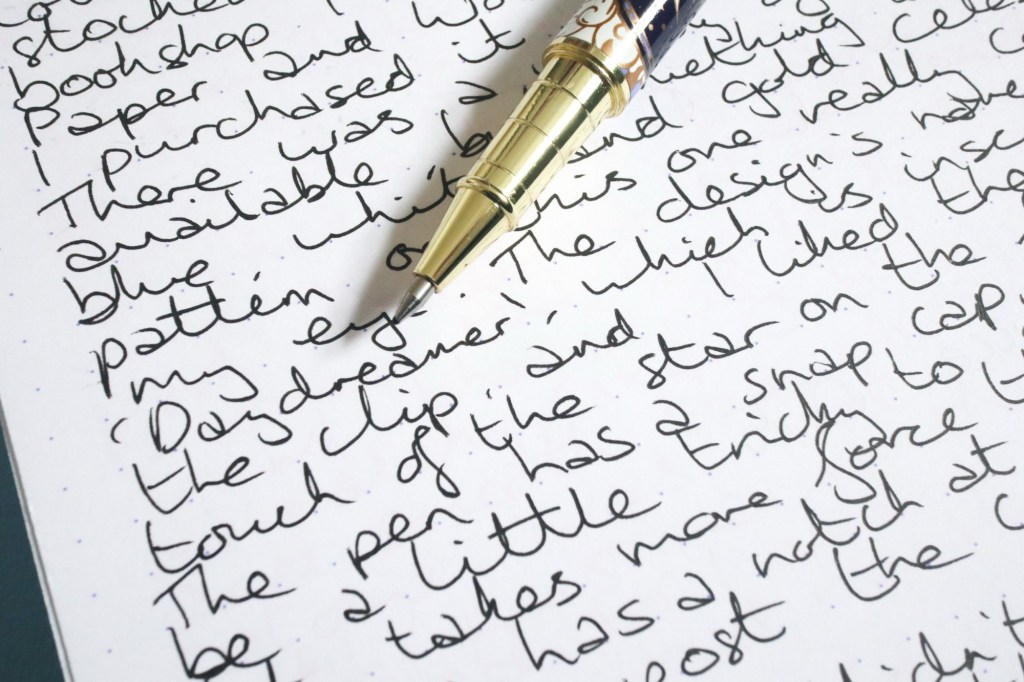 stocked
bookshop
Paper and
I purchased it
There was a
available
blue and gold
pattern this one really
my The design's name
'Daydreamer' which is
the clip and I liked the
touch of the star on the
The pen has a snap cap
be a little tricky to
takes more force
has a notch at
post the